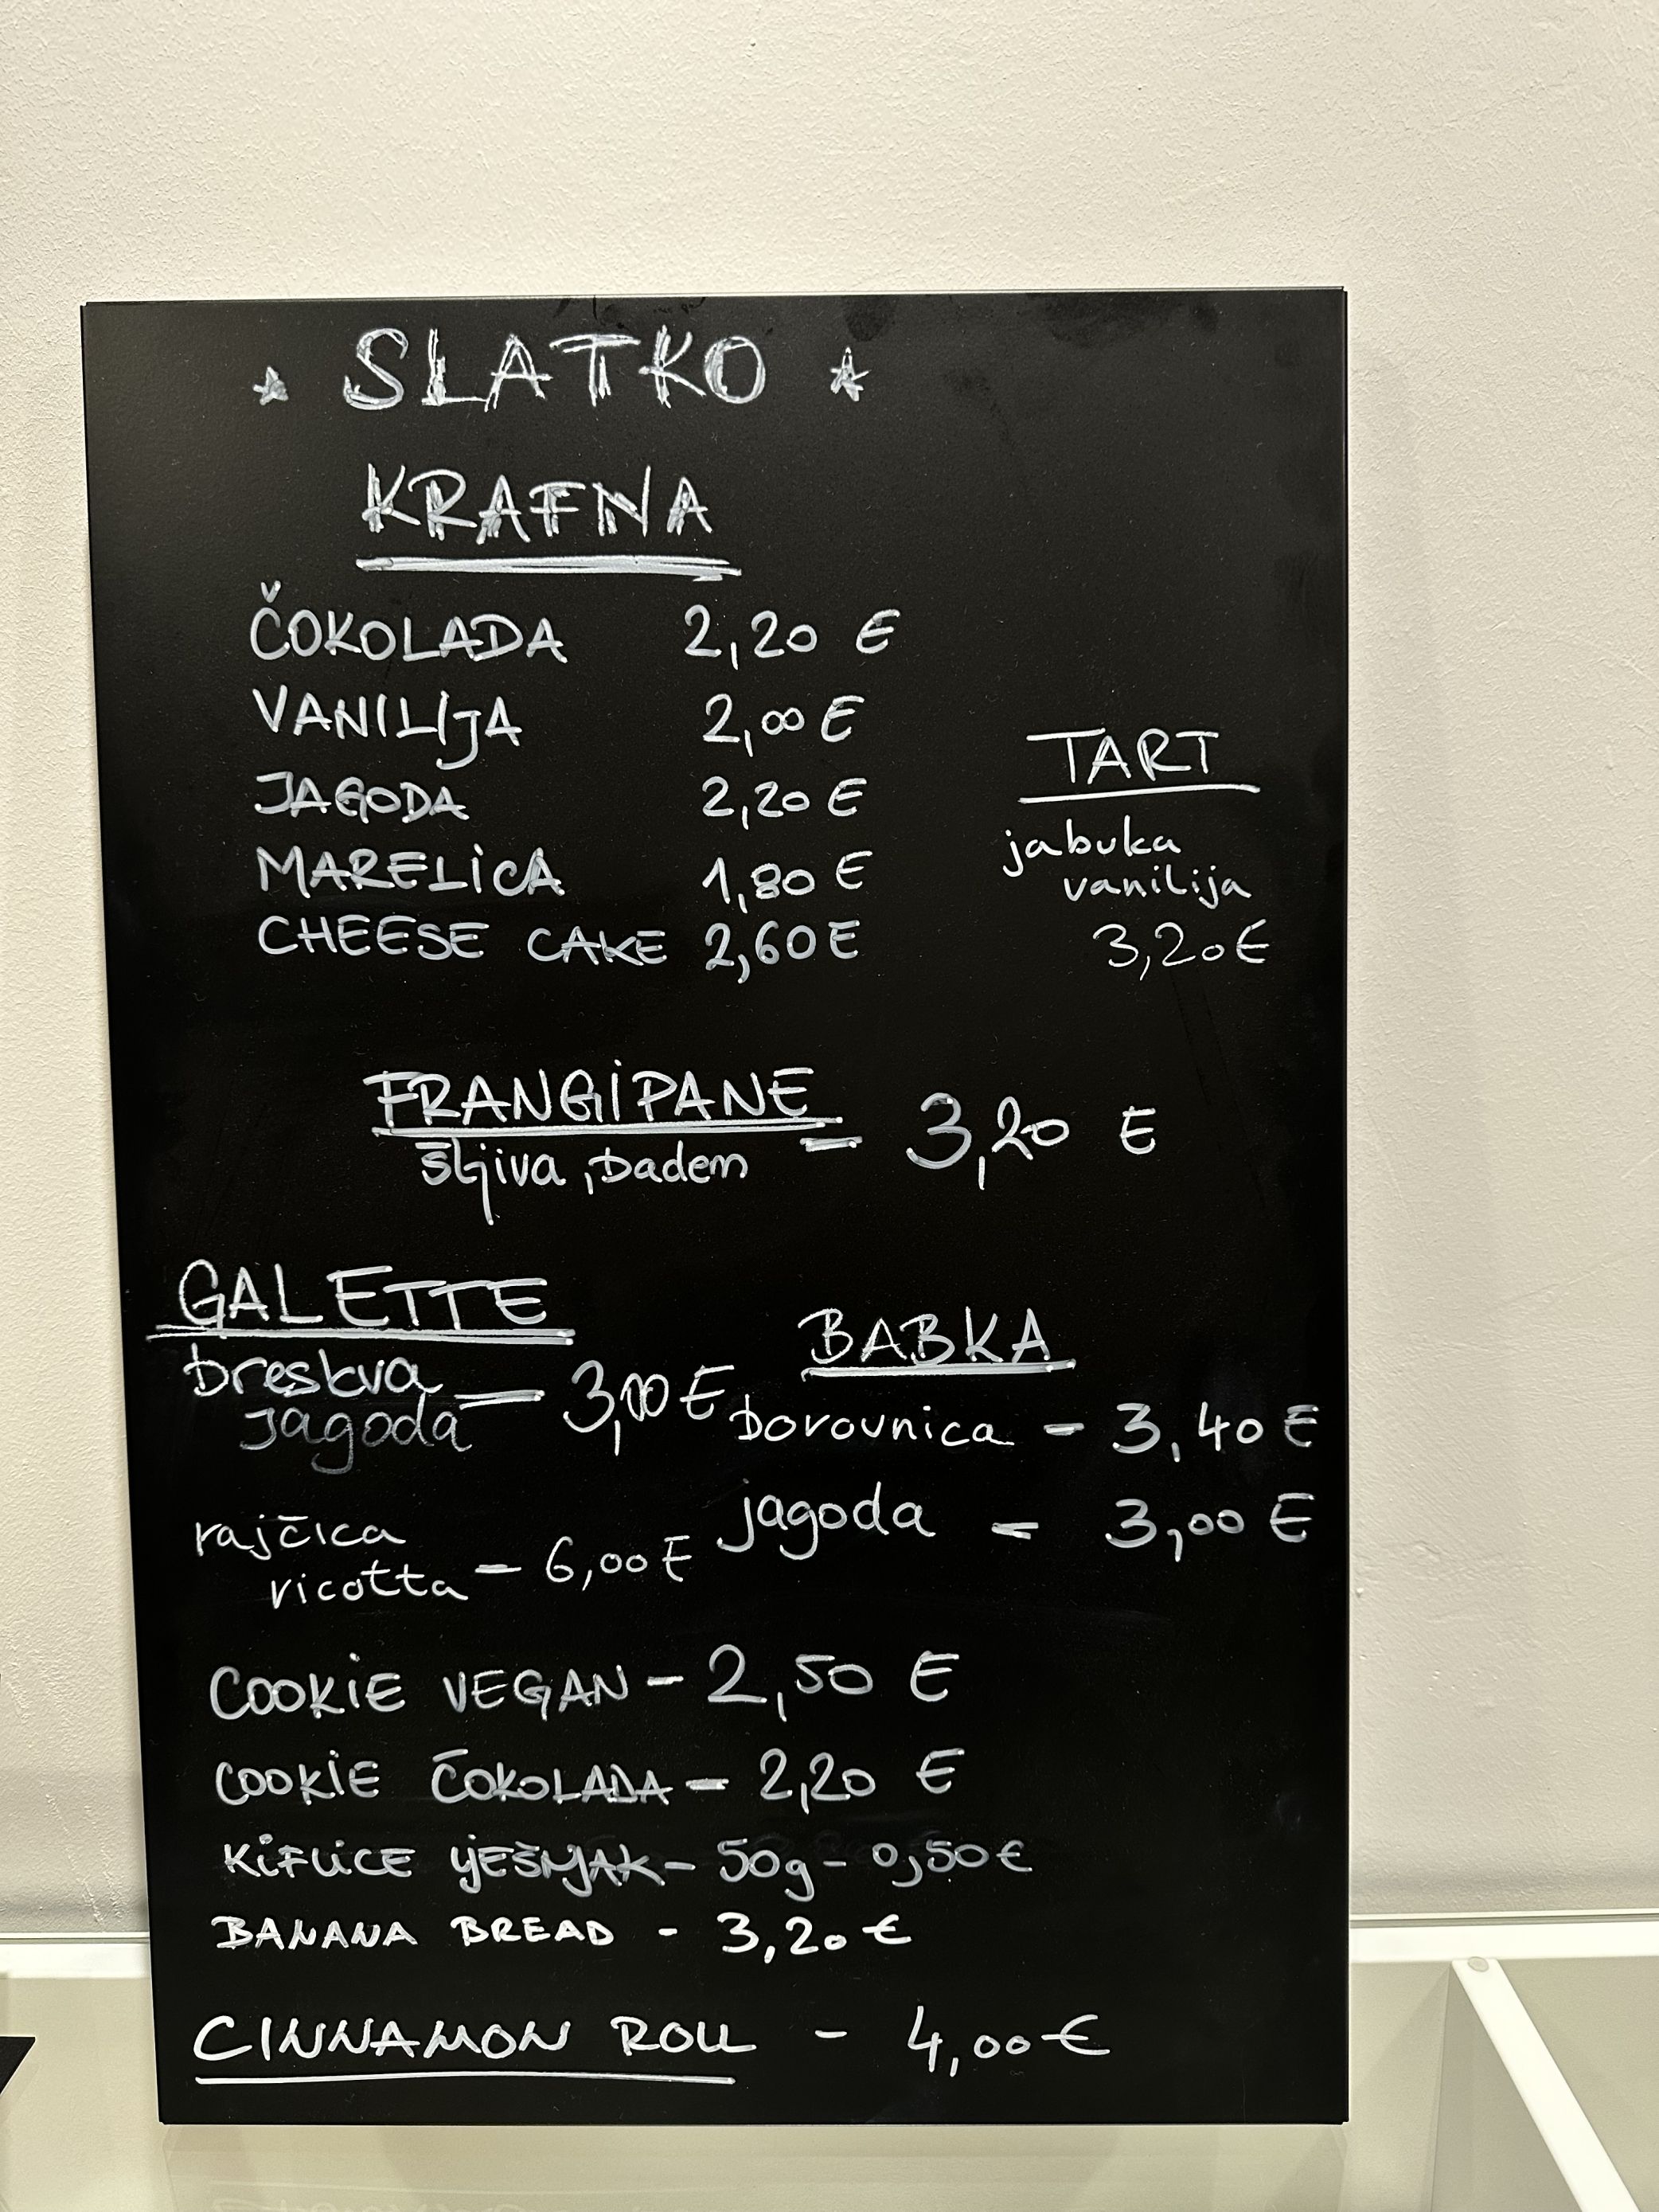 SLATKO
KRAFNA
ČOKOLADA 2,20 €
VANILIJA 2,00 €
JAGODA 2,20 €
MARELICA 1,80 €
CHEESE CAKE 2,60 €
TART
jabuka
vanilija
3,20 €
FRANGIPANE = 3,20 €
šljiva, badem
GALETTE
breskva
jagoda = 3,00 €
rajčica
ricotta - 6,00 €
BABKA
borovnica - 3,40 €
jagoda = 3,00 €
COOKIE VEGAN - 2,50 €
COOKIE ČOKOLADA - 2,20 €
KIFLICE LJEŠNJAK - 50g - 0,50 €
BANANA BREAD - 3,20 €
CINNAMON ROLL - 4,00 €